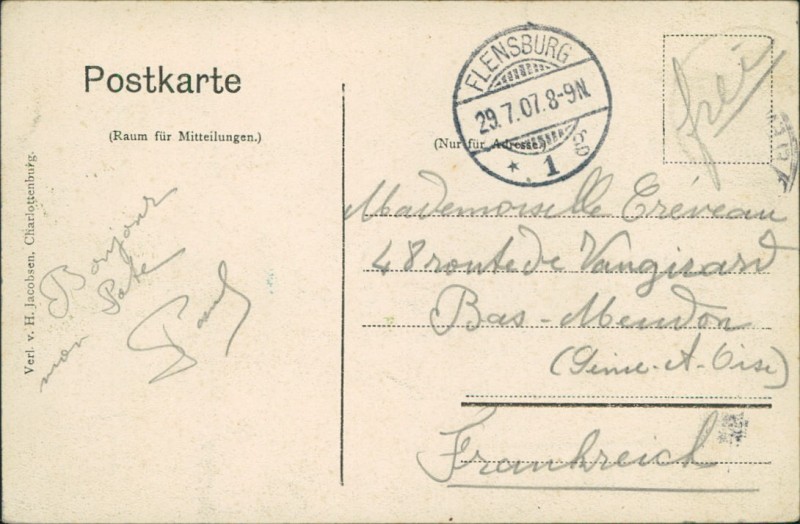 Postkarte
(Raum für Mitteilungen.)
(Nur für Adresse.)
FLENSBURG
29.7.07.8-9N.
* 1 g
frei
Verl. v. H. Jacobsen, Charlottenburg.
Bonjour
mon Pote
Paul
Mademoiselle Créveau
48 route de Vangirard
Bas-Meudon
(Seine-et-Oise)
Frankreich